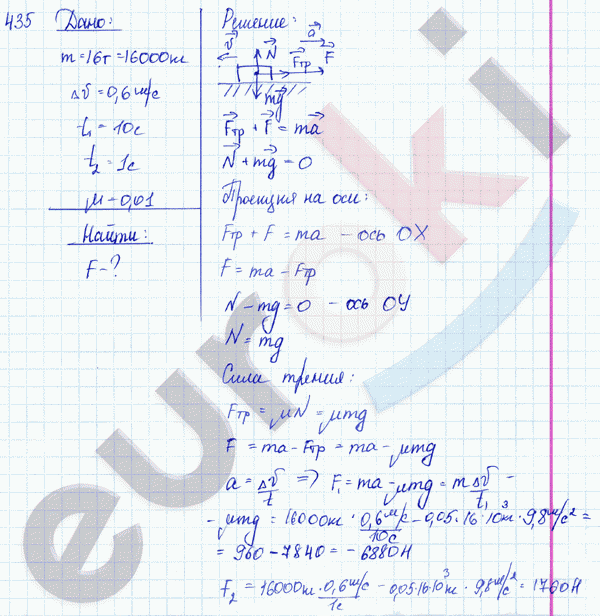 435 Дано:
m = 16т = 16000кг
Δv = 0,6 м/с
t₁ = 10с
t₂ = 1с
μ = 0,01
Найти:
F - ?
Решение:
v N a
Fтр F
mg
Fтр + F = ma
N + mg = 0
Проекция на оси:
Fтр + F = ma - ось OX
F = ma - Fтр
N - mg = 0 - ось OY
N = mg
Сила трения:
Fтр = μN = μmg
F = ma - Fтр = ma - μmg
a = Δv/t => F₁ = ma - μmg = m Δv/t₁ -
- μmg = 16000кг · 0,6 м/с / 10с - 0,05 · 16 · 10³кг · 9,8 м/с² =
= 960 - 7840 = - 6880Н
F₂ = 16000кг · 0,6 м/с / 1с - 0,05 · 16 · 10³кг · 9,8 м/с² = 1760Н
euroki